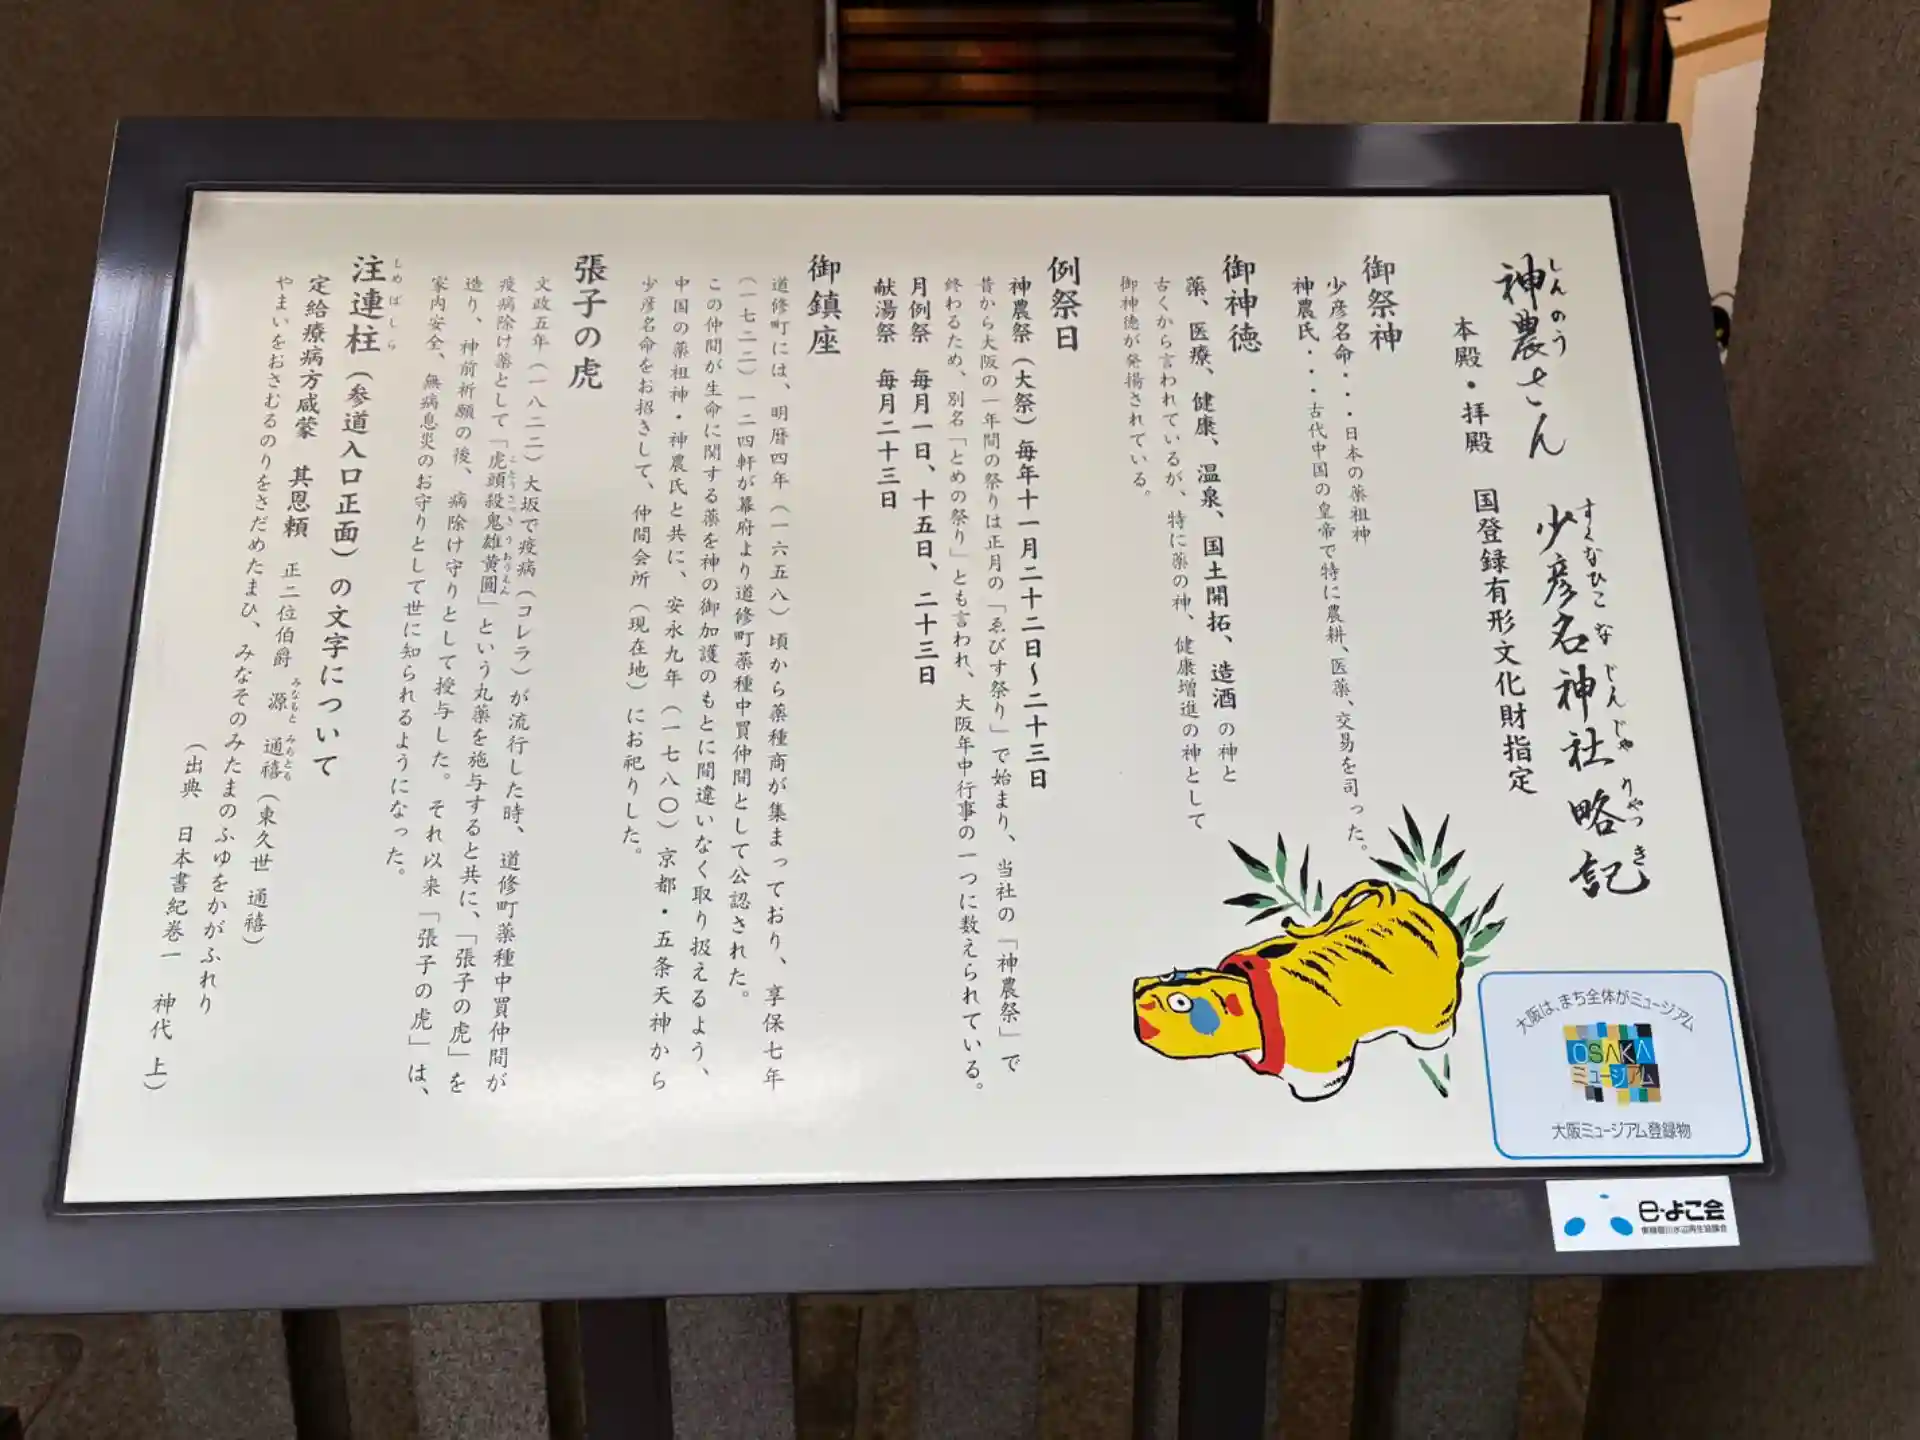 神農さん 少彦名神社略記
しんのう すくなひこな じんじゃ りやっき
本殿・拝殿 国登録有形文化財指定
御祭神
少彦名命・・・日本の薬祖神
神農氏・・・古代中国の皇帝で特に農耕、医薬、交易を司った。
御神徳
薬、医療、健康、温泉、国土開拓、造酒の神と
古くから言われているが、特に薬の神、健康増進の神として
御神徳が発揚されている。
例祭日
神農祭（大祭）毎年十一月二十二日～二十三日
昔から大阪の一年間の祭りは正月の「ゑびす祭り」で始まり、当社の「神農祭」で
終わるため、別名「とめの祭り」とも言われ、大阪年中行事の一つに数えられている。
月例祭 毎月一日、十五日、二十三日
献湯祭 毎月二十三日
御鎮座
道修町には、明暦四年（一六五八）頃から薬種商が集まっており、享保七年
（一七二二）一二四軒が幕府より道修町薬種中買仲間として公認された。
この仲間が生命に関する薬を神の御加護のもとに間違いなく取り扱えるよう、
中国の薬祖神・神農氏と共に、安永九年（一七八〇）京都・五条天神から
少彦名命をお招きして、仲間会所（現在地）にお祀りした。
張子の虎
文政五年（一八二二）大坂で疫病（コレラ）が流行した時、道修町薬種中買仲間が
疫病除け薬として「虎頭殺鬼雄黄圓」という丸薬を施与すると共に、「張子の虎」を
ことうさっきうおうえん
造り、神前祈願の後、病除け守りとして授与した。それ以来「張子の虎」は、
家内安全、無病息災のお守りとして世に知られるようになった。
しめばしら
注連柱（参道入口正面）の文字について
定給療病方咸蒙 其恩頼 正二位伯爵 源 通禧（東久世 通禧）
みなもと みちとみ
やまいをおさむるのりをさだめたまひ、みなそのみたまのふゆをかがふれり
（出典 日本書紀巻一 神代 上）
大阪は、まち全体がミュージアム
OSAKA
ミュージアム
大阪ミュージアム登録物
e-よこ会
東横堀川水辺再生協議会